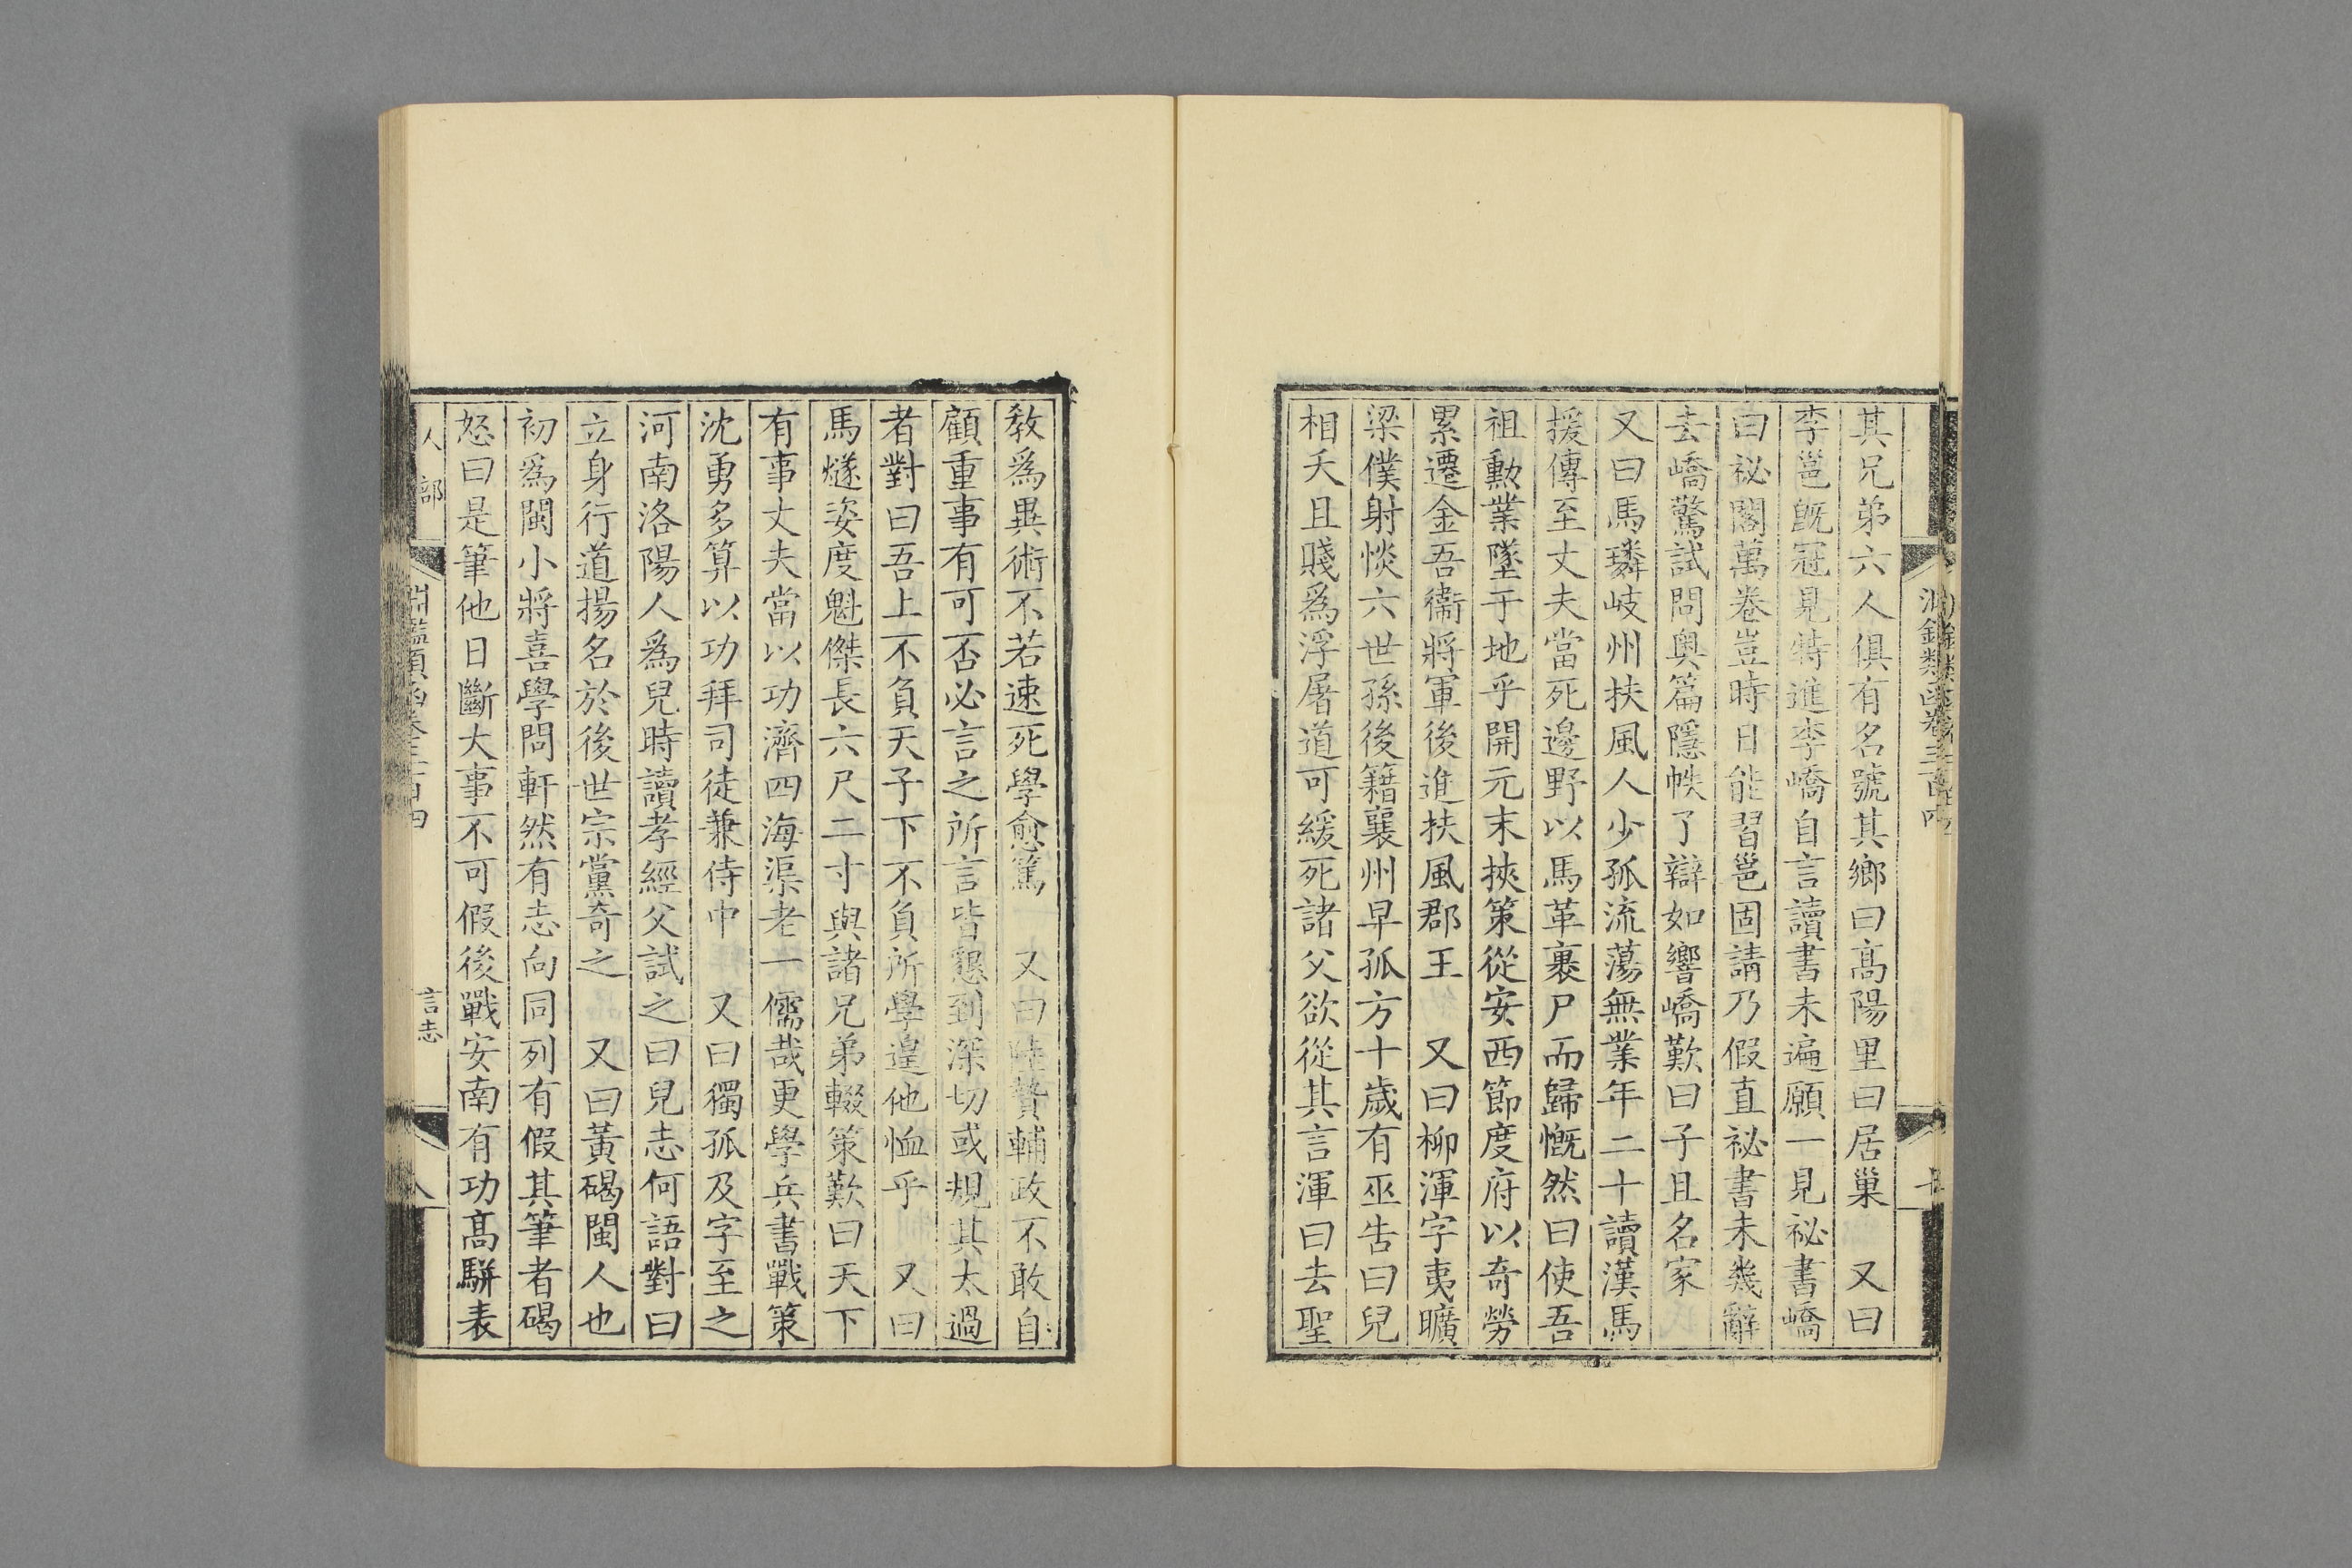 其兄弟六人俱有名號其鄉曰高陽里曰居巢　又曰
李邕旣冠見特進李嶠自言讀書未遍願一見祕書嶠
曰祕閣萬卷豈時日能習邕固請乃假直祕書未幾辭
去嶠驚試問奧篇隱帙了辯如響嶠歎曰子且名家
又曰馬璘岐州扶風人少孤流蕩無業年二十讀漢馬
援傳至丈夫當死邊野以馬革裹尸而歸慨然曰使吾
祖勳業墜于地乎開元末挾策從安西節度府以奇勞
累遷金吾衞將軍後進扶風郡王　又曰柳渾字夷曠
梁僕射惔六世孫後籍襄州早孤方十歲有巫告曰兒
相夭且賤爲浮屠道可緩死諸父欲從其言渾曰去聖
敎爲異術不若速死學愈篤　又曰陸贄輔政不敢自
顧重事有可否必言之所言皆懇到深切或規其太過
者對曰吾上不負天子下不負所學遑他恤乎　又曰
馬燧姿度魁傑長六尺二寸與諸兄弟輟策歎曰天下
有事丈夫當以功濟四海渠老一儒哉更學兵書戰策
沈勇多算以功拜司徒兼侍中　又曰獨孤及字至之
河南洛陽人爲兒時讀孝經父試之曰兒志何語對曰
立身行道揚名於後世宗黨奇之　又曰黃碣閩人也
初爲閩小將喜學問軒然有志向同列有假其筆者碣
怒曰是筆他日斷大事不可假後戰安南有功高駢表
人部
淵鑑類函卷三百四
言志
八